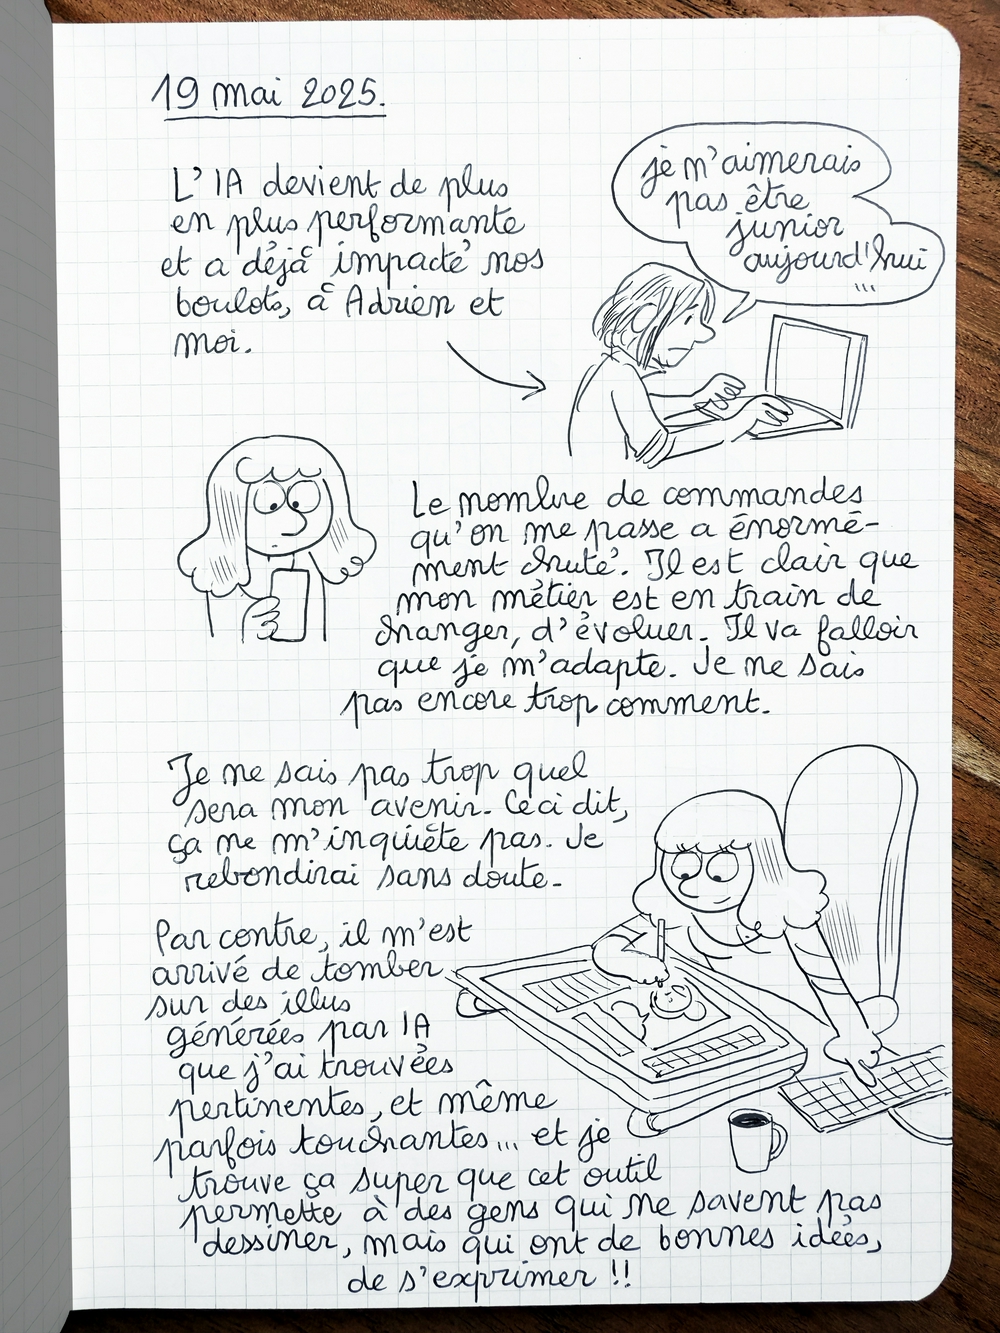 19 mai 2025.
L'IA devient de plus
en plus performante
et a déjà impacté nos
boulots, à Adrien et
moi.
je m'aimerais
pas être
junior
aujourd'hui
...
Le nombre de commandes
qu'on me passe a énormé-
ment chuté. Il est clair que
mon métier est en train de
changer, d'évoluer. Il va falloir
que je m'adapte. Je ne sais
pas encore trop comment.
Je ne sais pas trop quel
sera mon avenir. Ceci dit,
ça ne m'inquiète pas. Je
rebondirai sans doute.
Par contre, il m'est
arrivé de tomber
sur des illus
générées par IA
que j'ai trouvées
pertinentes, et même
parfois touchantes... et je
trouve ça super que cet outil
permette à des gens qui ne savent pas
dessiner, mais qui ont de bonnes idées,
de s'exprimer !!